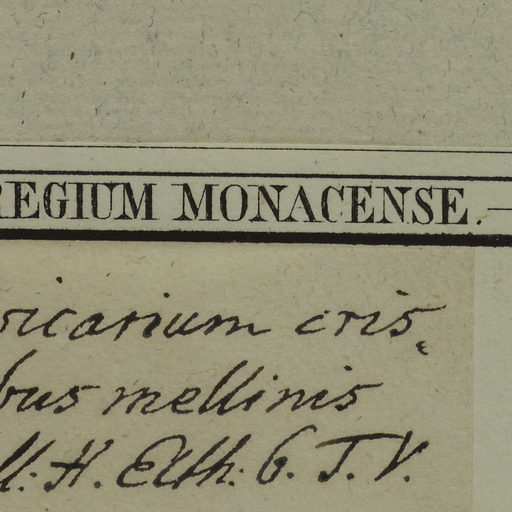 REGIUM MONACENSE.—
ricarium cris,
bus mellinis
ll: H. Elth: 6. T. V.